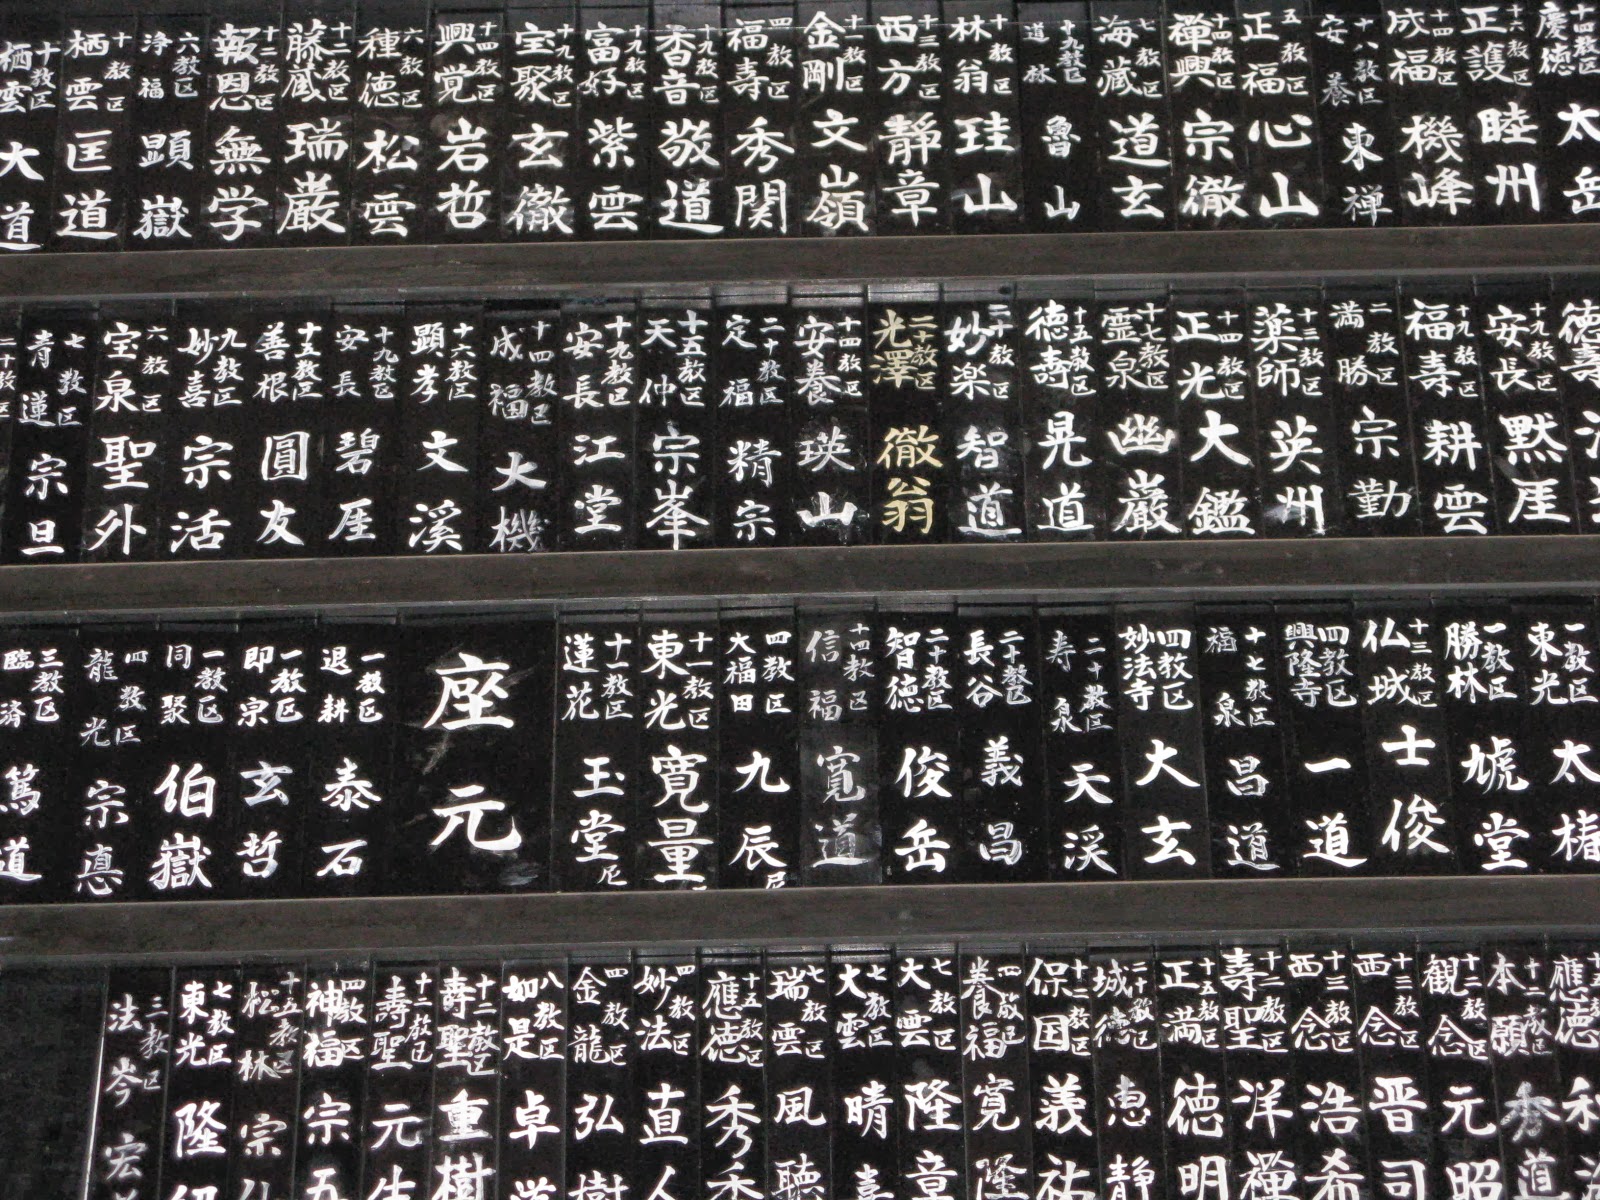 十四教区 慶徳 太岳
十六教区 正護 睦州
十四教区 成福 機峰
十八教区 安養 東禅
五教区 正福 心山
十四教区 禅興 宗徹
七教区 海蔵 道玄
十九教区 道林 魯山
十教区 林翁 珪山
十三教区 西方 靜章
十一教区 金剛 文嶺
四教区 福壽 秀関
十九教区 香音 敬道
十九教区 富好 紫雲
十九教区 宝聚 玄徹
十四教区 興覚 岩哲
六教区 種徳 松雲
十二教区 藤蔵 瑞巌
十二教区 報恩 無学
六教区 浄福 顕嶽
十教区 栖雲 匡道
十教区 栖雲 大道
徳壽
十九教区 安長 黙厓
十九教区 福壽 耕雲
二教区 満勝 宗勤
十三教区 薬師 英州
十四教区 正光 大鑑
十七教区 霊泉 幽巌
十五教区 徳壽 晃道
二十教区 妙楽 智道
二十教区 光澤 徹翁
十四教区 安養 瑛山
二十教区 定福 精宗
十五教区 天仲 宗峯
十九教区 安長 江堂
十四教区 成福 大機
十六教区 顕孝 文溪
十九教区 安長 碧厓
十五教区 善根 圓友
九教区 妙喜 宗活
六教区 宝泉 聖外
七教区 青蓮 宗旦
二十教区
一教区 東光 太椿
一教区 勝林 虓堂
十三教区 仏城 士俊
四教区 興隆寺 一道
十七教区 福泉 昌道
四教区 妙法寺 大玄
二十教区 寿泉 天渓
二十教区 長谷 義昌
二十教区 智徳 俊岳
十四教区 信福 寛道
四教区 大福田 九辰尼
十一教区 東光 寛量
十一教区 蓮花 玉堂尼
座元
一教区 退耕 泰石
一教区 即宗 玄哲
一教区 同聚 伯嶽
四教区 龍光 宗悳
三教区 臨済 篤道
應徳
十二教区 本願 秀道
十二教区 観念 元昭
十三教区 西念 晋司
十三教区 西念 浩希
十二教区 壽聖 洋禅
十五教区 正満 徳明
二十教区 城徳 恵静
十二教区 保国 義祐
四教区 養福 寛隆
七教区 大雲 隆章
七教区 大雲 晴
七教区 瑞雲 風聴
十五教区 應徳 秀
四教区 妙法 直人
四教区 金龍 弘樹
八教区 如是 卓道
十二教区 壽聖 重樹
十二教区 壽聖 元生
四教区 神福 宗五
十五教区 松林 宗
七教区 東光 隆
三教区 法岑 宏